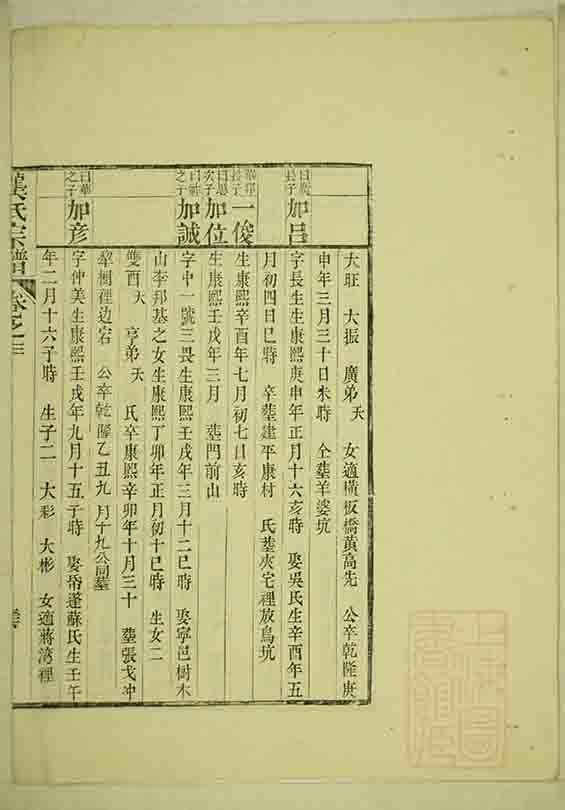 大旺 大振 廣弟 夭 女適橫板橋黃高先 公卒乾隆庚
申年三月三十日未時 仝塟羊婆坑
曰慶長子
加呂
字長生生康熙庚申年正月十六亥時 娶吳氏生辛酉年五
月初四日巳時 卒塟建平康村 氏塟夾宅裡放鳥坑
長子
一俊
生康熙辛酉年七月初七日亥時
次子
加位
生康熙壬戌年三月 塟門前山
之子
加誠
字中一號三畏生康熙壬戌年三月十二巳時 娶寧邑樹木
山李邦基之女生康熙丁卯年正月初十巳時 生女二
雙酉 夭 亨弟 夭 氏卒康熙辛卯年十月三十 塟張戈冲
犂棚裡边宕 公卒乾隆乙丑九月十九公同墓
曰華之子
加彦
字仲美生康熙壬戌年九月十五子時 娶帶蓬蘇氏生壬午
年二月十六子時 生子二 大彩 大彬 女適蔣湾裡
氏宗譜 卷之三